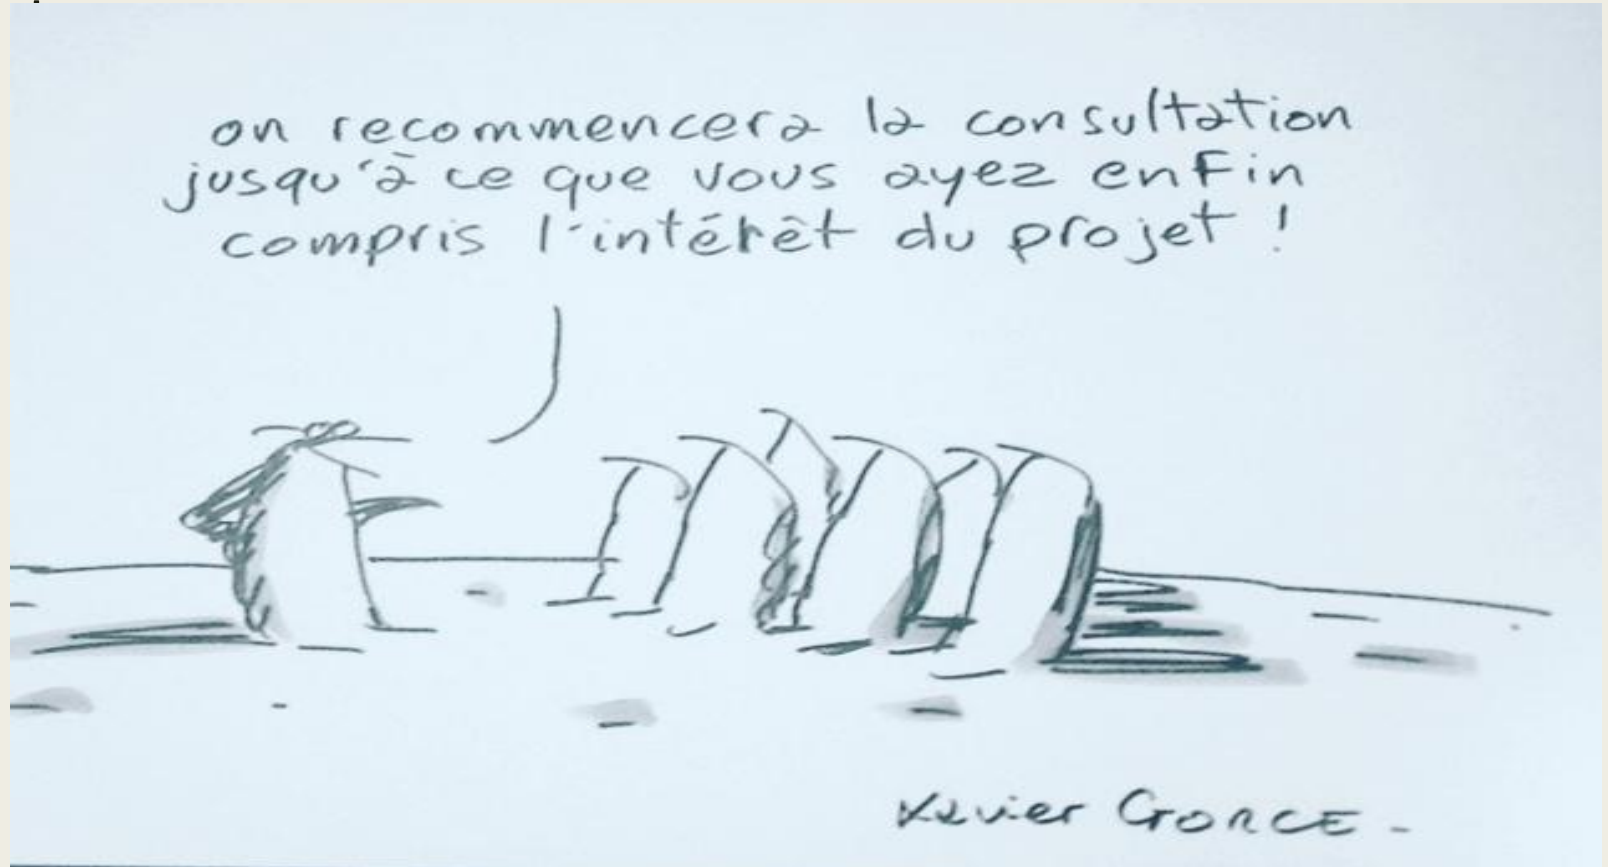 on recommencera la consultation
jusqu'à ce que vous ayez enfin
compris l'intérêt du projet !
Xavier GORCE -